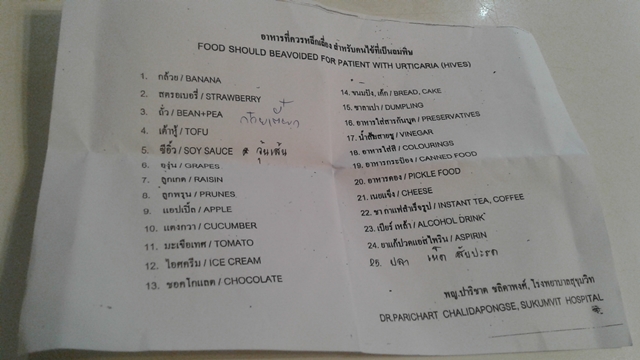 อาหารที่ควรหลีกเลี่ยง สำหรับคนไข้ที่เป็นลมพิษ
FOOD SHOULD BEAVOIDED FOR PATIENT WITH URTICARIA (HIVES)
1. กล้วย / BANANA
2. สตรอเบอรี่ / STRAWBERRY
3. ถั่ว / BEAN+PEA
4. เต้าหู้ / TOFU
5. ซีอิ๊ว / SOY SAUCE * วุ้นเส้น
6. องุ่น / GRAPES
7. ลูกเกด / RAISIN
8. ลูกพรุน / PRUNES
9. แอปเปิ้ล / APPLE
10. แตงกวา / CUCUMBER
11. มะเขือเทศ / TOMATO
12. ไอศครีม / ICE CREAM
13. ชอคโกแลต / CHOCOLATE
14. ขนมปัง, เค้ก / BREAD, CAKE
15. ซาลาเปา / DUMPLING
16. อาหารใส่สารกันบูด / PRESERVATIVES
17. น้ำส้มสายชู / VINEGAR
18. อาหารใส่สี / COLOURINGS
19. อาหารกระป๋อง / CANNED FOOD
20. อาหารดอง / PICKLE FOOD
21. เนยแข็ง / CHEESE
22. ชา กาแฟสำเร็จรูป / INSTANT TEA, COFFEE
23. เบียร์ เหล้า / ALCOHOL DRINK
24. ยาแก้ปวดแอสไพริน / ASPIRIN
25. ปลา เห็ด สับปะรด
พญ.ปาริชาต ชลิดาพงศ์, โรงพยาบาลสุขุมวิท
DR.PARICHART CHALIDAPONGSE, SUKUMVIT HOSPITAL